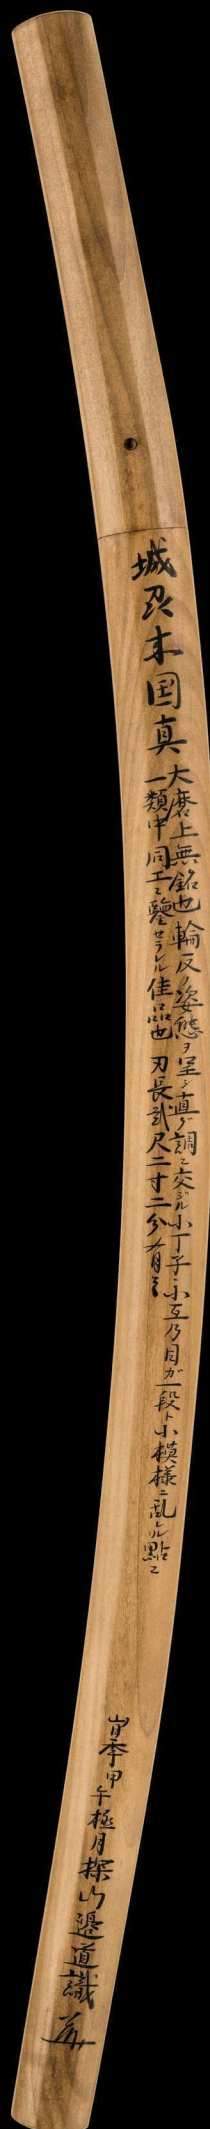 城刕来国真
大磨上無銘也輪反ノ姿態ヲ呈シ直ダ調ニ交ジル小丁子小互乃目ガ一段ト小模様ニ乱ルル點ニ
一類中同工ニ鑒セラルル佳品也 刃長貳尺二寸二分有之
甲午極月探山邉道識